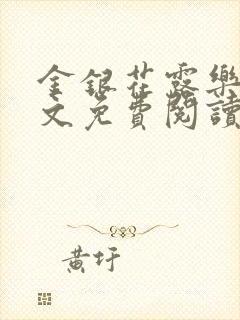 金銀花露樂
文免費閱讀
黃圩